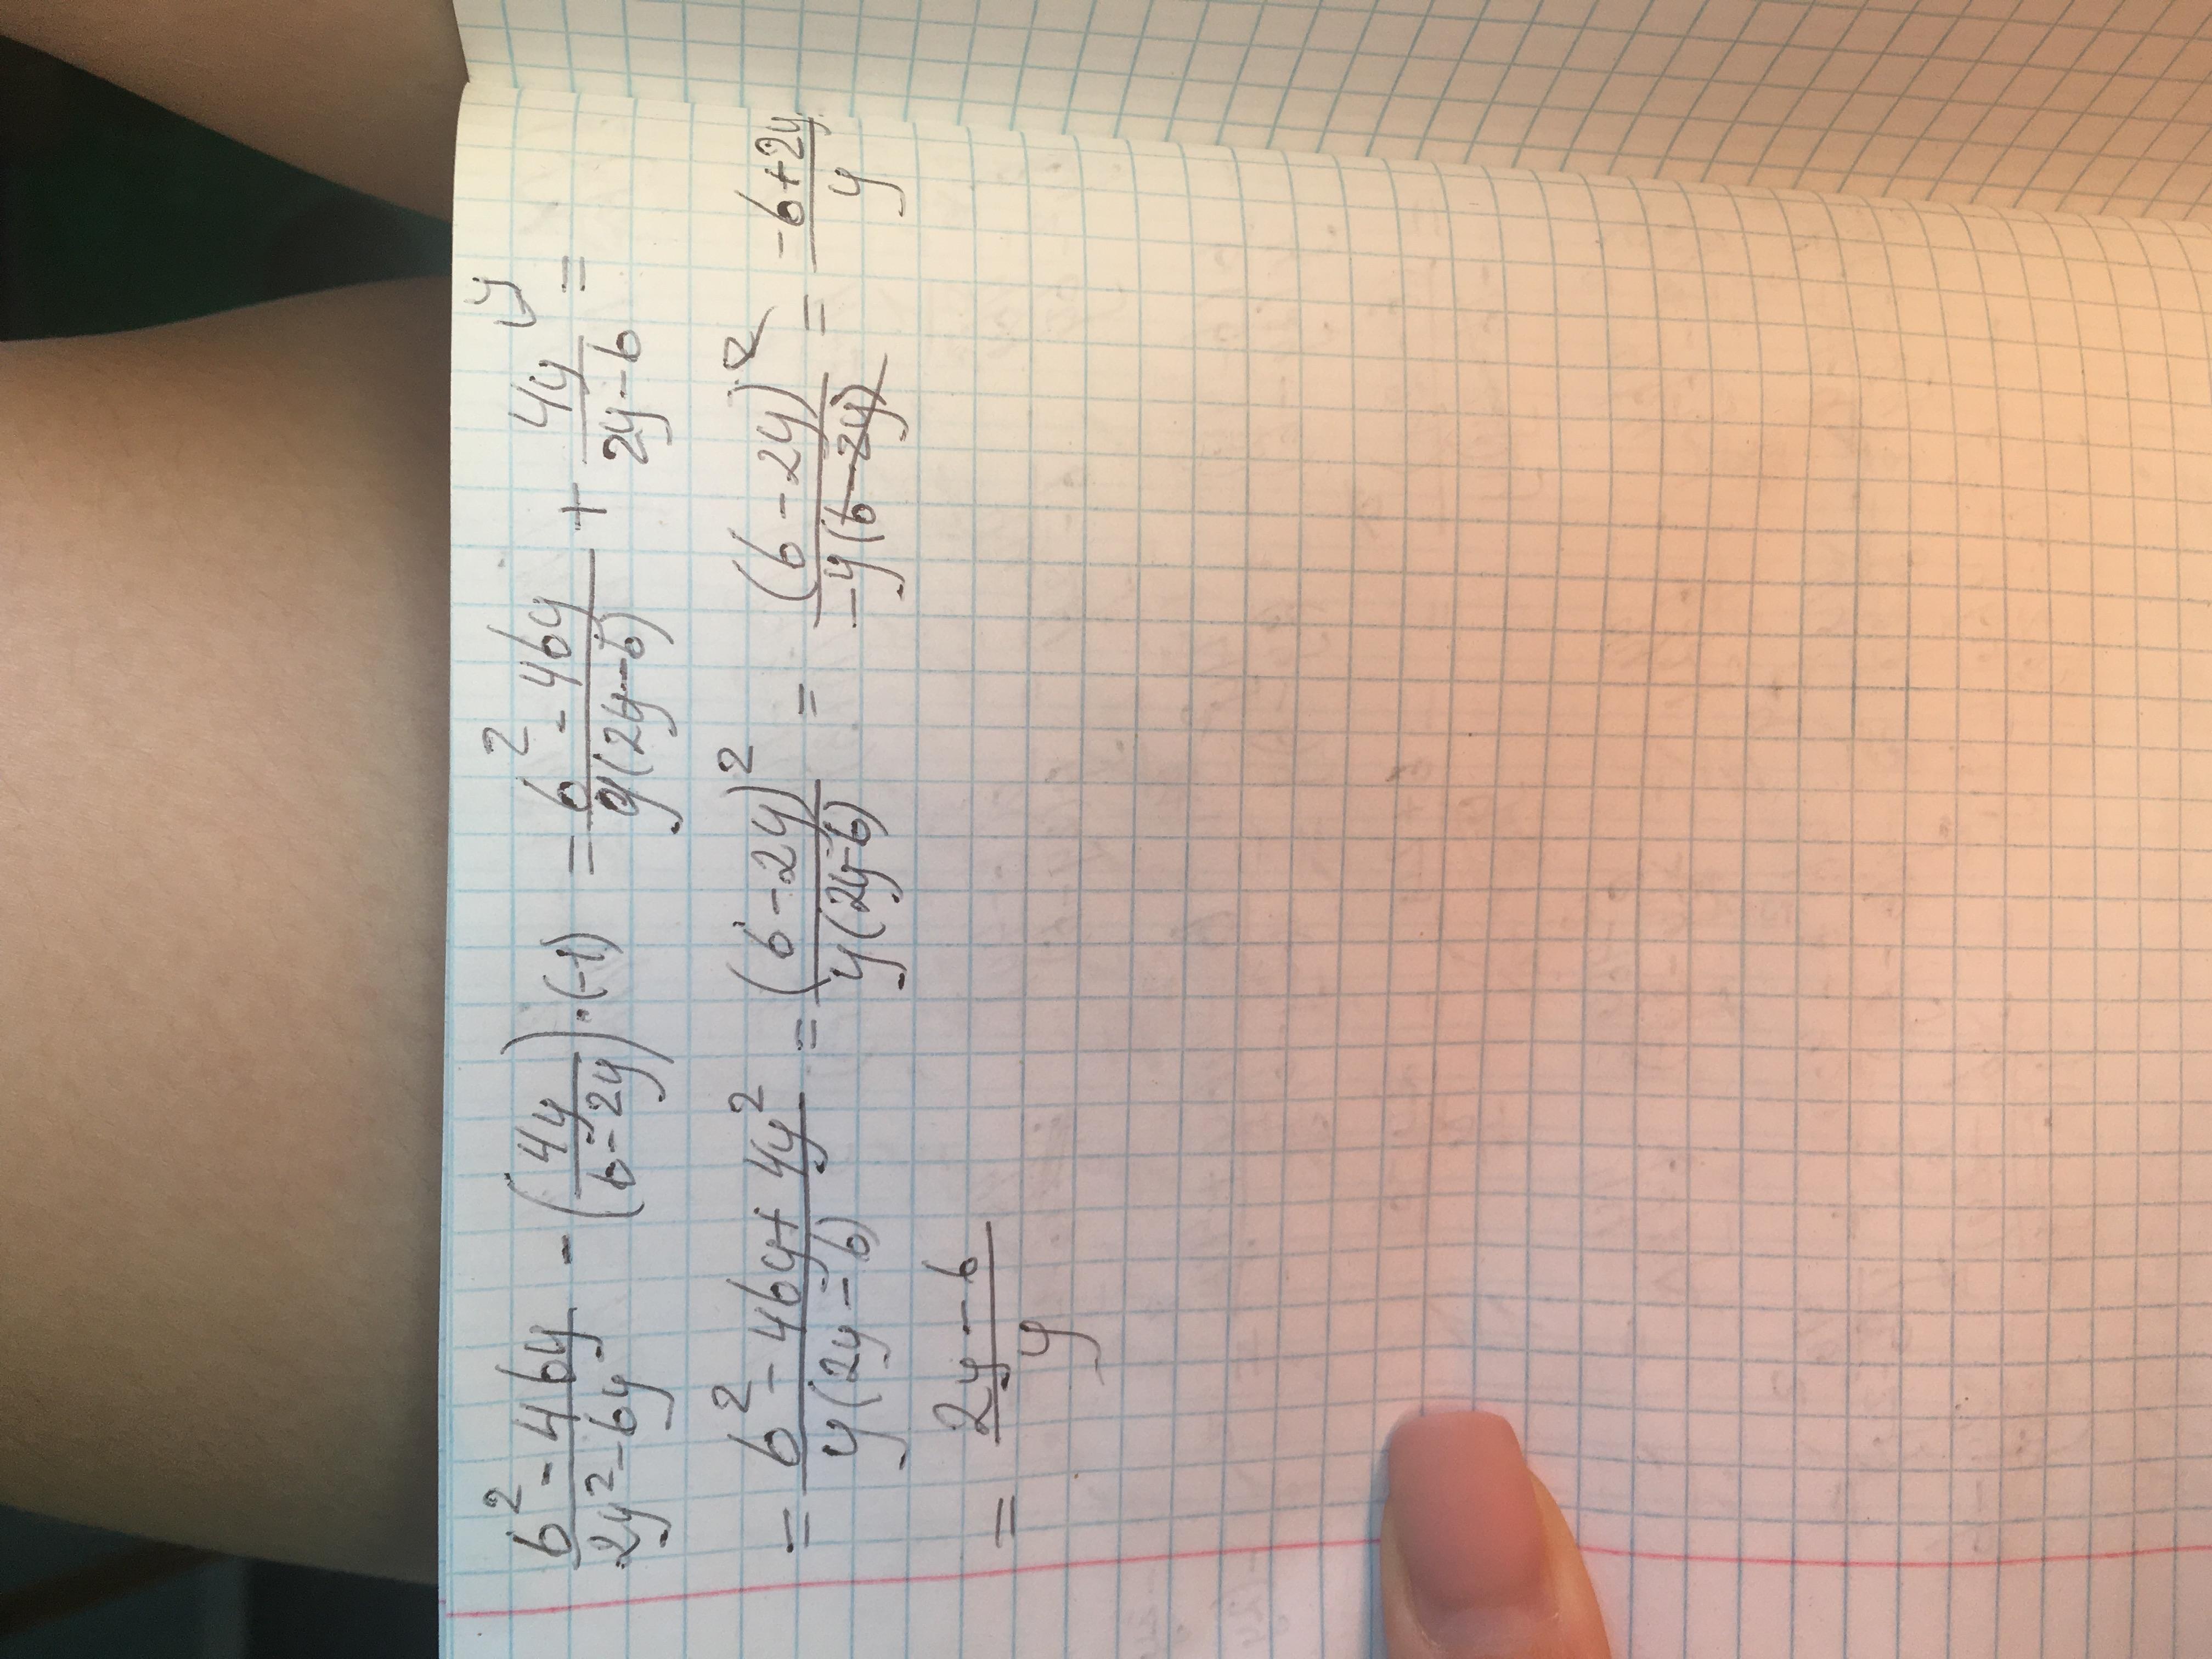 b² - 4by / 2y² - by - (4y / b - 2y) · (-1) = b² - 4by / y(2y - b) + 4y / 2y - b ⌣y =
= b² - 4by + 4y² / y(2y - b) = (b - 2y)² / y(2y - b) = (b - 2y)² / -y(b - 2y) = -b + 2y / y
= 2y - b / y